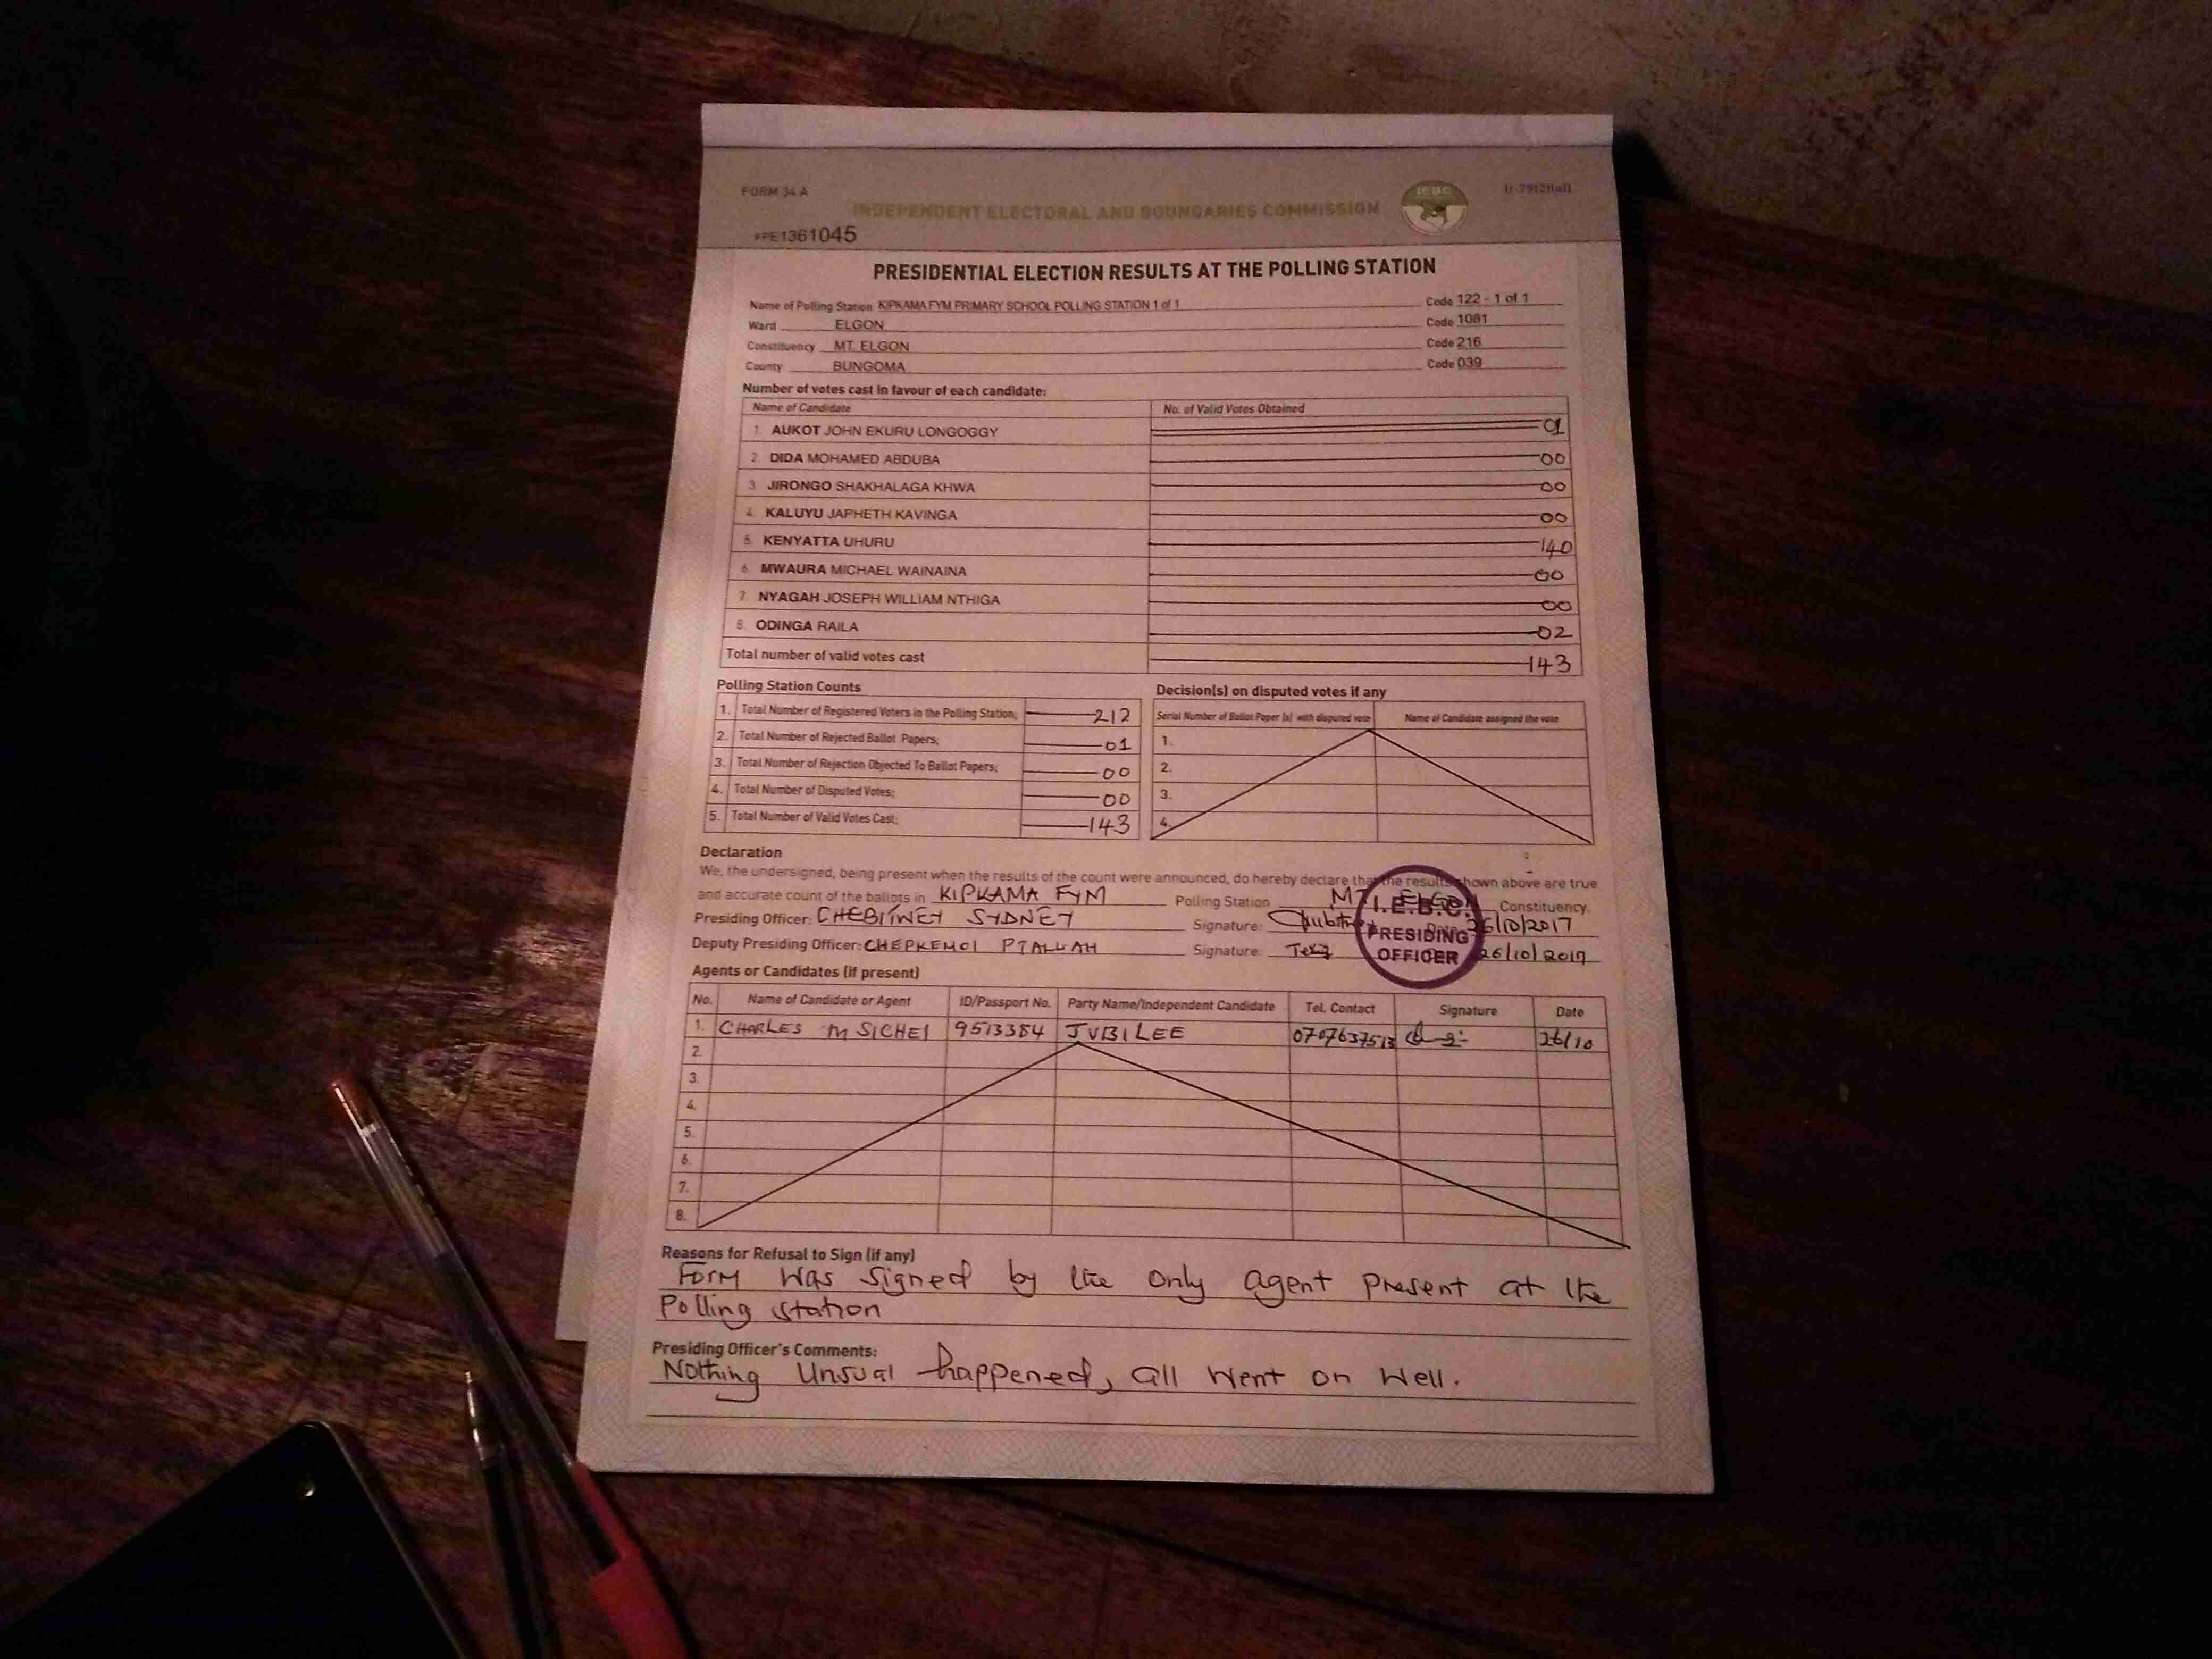 FORM 34 A
INDEPENDENT ELECTORAL AND BOUNDARIES COMMISSION
IEBC
#PE1361045
PRESIDENTIAL ELECTION RESULTS AT THE POLLING STATION
Name of Polling Station KIPKAMA FYM PRIMARY SCHOOL POLLING STATION 1 of 1 Code 122 - 1 of 1
Ward ELGON Code 1081
Constituency MT. ELGON Code 216
County BUNGOMA Code 039
Number of votes cast in favour of each candidate:
Name of Candidate No. of Valid Votes Obtained
1. AUKOT JOHN EKURU LONGOGGY 01
2. DIDA MOHAMED ABDUBA 00
3. JIRONGO SHAKHALAGA KHWA 00
4. KALUYU JAPHETH KAVINGA 00
5. KENYATTA UHURU 140
6. MWAURA MICHAEL WAINAINA 00
7. NYAGAH JOSEPH WILLIAM NTHIGA 00
8. ODINGA RAILA 02
Total number of valid votes cast 143
Polling Station Counts
1. Total Number of Registered Voters in the Polling Station; 212
2. Total Number of Rejected Ballot Papers; 01
3. Total Number of Rejection Objected To Ballot Papers; 00
4. Total Number of Disputed Votes; 00
5. Total Number of Valid Votes Cast; 143
Decision(s) on disputed votes if any
Serial Number of Ballot Paper (s) with disputed vote Name of Candidate assigned the vote
1.
2.
3.
4.
Declaration
We, the undersigned, being present when the results of the count were announced, do hereby declare that the results shown above are true
and accurate count of the ballots in KIPKAMA FYM Polling Station MT. ELGON Constituency.
Presiding Officer: CHEBITWEY SYDNEY Signature: Date 26/10/2017
Deputy Presiding Officer: CHEPKEMOI Signature: 26/10/2017
I.E.B.C.
PRESIDING
OFFICER
Agents or Candidates (if present)
No. Name of Candidate or Agent ID/Passport No. Party Name/Independent Candidate Tel. Contact Signature Date
1. CHARLES M SICHEI 9513384 JUBILEE 0707637513 26/10
2.
3.
4.
5.
6.
7.
8.
Reasons for Refusal to Sign (if any)
Form was signed by the only agent present at the
Polling station
Presiding Officer's Comments:
Nothing Unsual happened, all went on well.